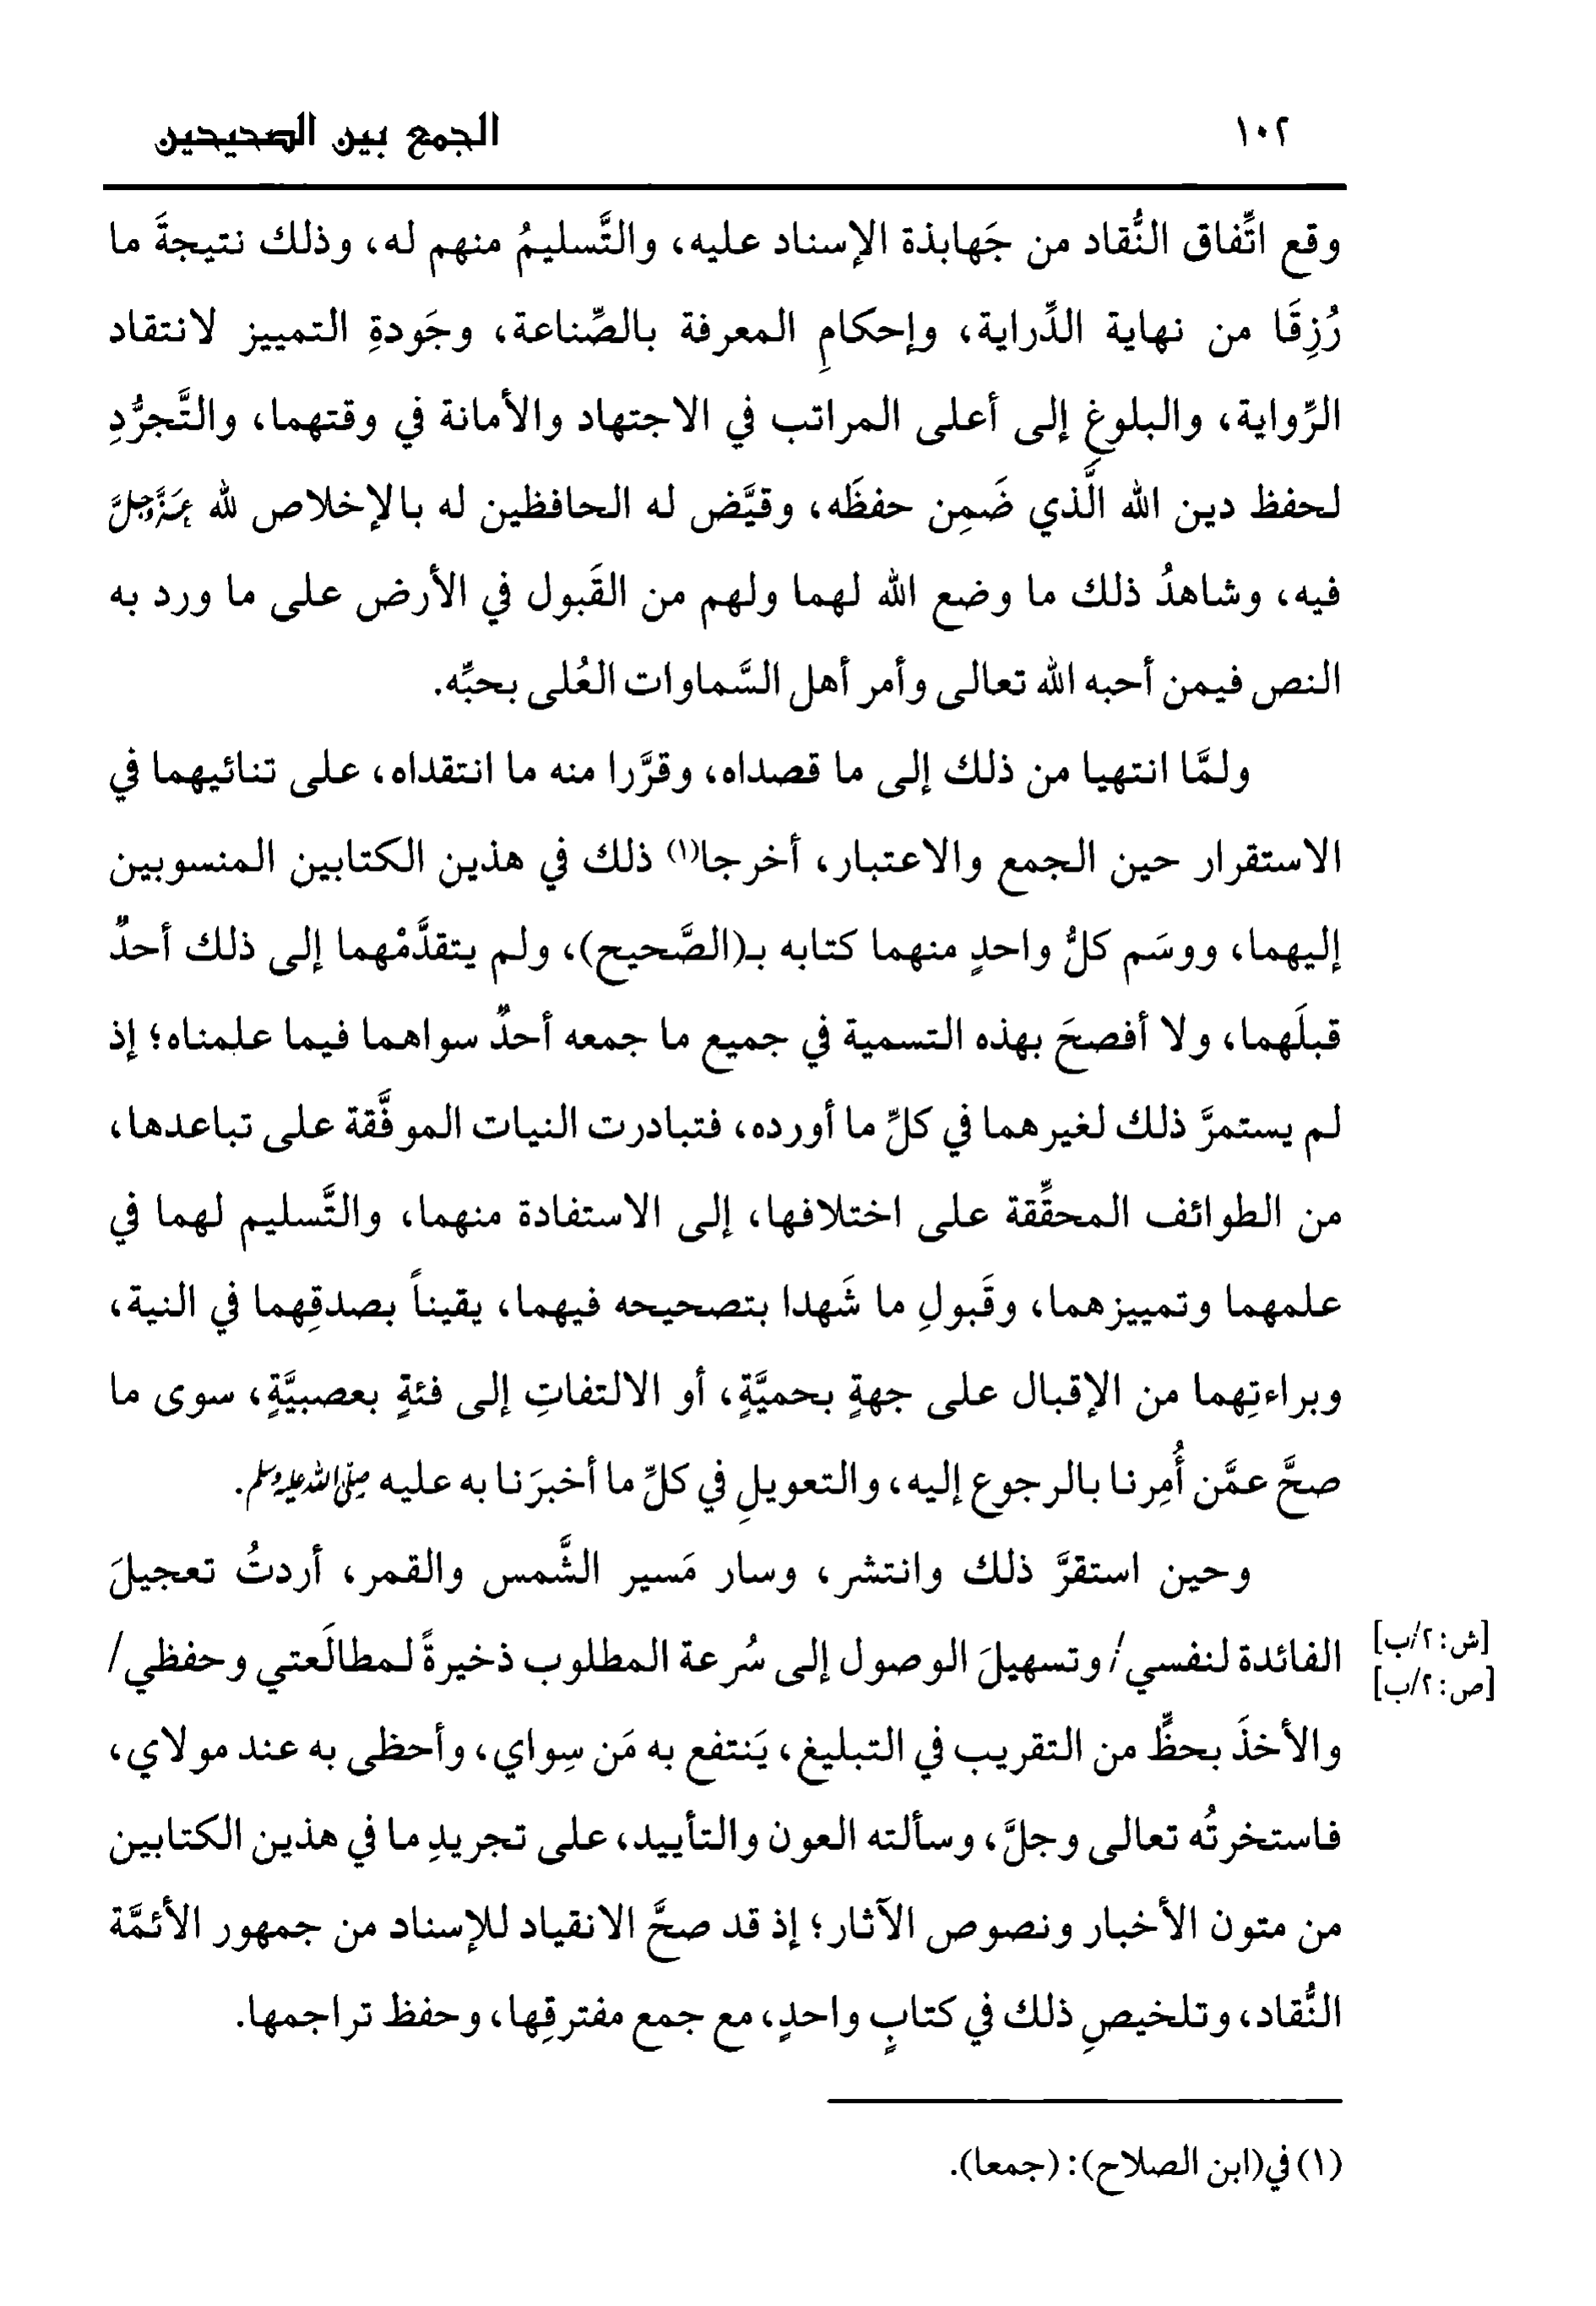 ١٠٢ الجمع بين الصحيحين
وقع اتِّفاق النُّقاد من جَهابذة الإسناد عليه، والتَّسليمُ منهم له، وذلك نتيجةَ ما
رُزِقَا من نهاية الدِّراية، وإحكامِ المعرفة بالصِّناعة، وجَودةِ التمييز لانتقاد
الرِّواية، والبلوغِ إلى أعلى المراتب في الاجتهاد والأمانة في وقتهما، والتَّجرُّدِ
لحفظ دين الله الَّذي ضَمِن حفظَه، وقيَّض له الحافظين له بالإخلاص لله عَزَّوَجَلَّ
فيه، وشاهدُ ذلك ما وضع الله لهما ولهم من القَبول في الأرض على ما ورد به
النص فيمن أحبه الله تعالى وأمر أهل السَّماوات العُلى بحبِّه.
ولمَّا انتهيا من ذلك إلى ما قصداه، وقرَّرا منه ما انتقداه، على تنائيهما في
الاستقرار حين الجمع والاعتبار، أخرجا(١) ذلك في هذين الكتابين المنسوبين
إليهما، ووسَم كلُّ واحدٍ منهما كتابه بـ(الصَّحيح)، ولم يتقدَّمْهما إلى ذلك أحدٌ
قبلَهما، ولا أفصحَ بهذه التسمية في جميع ما جمعه أحدٌ سواهما فيما علمناه؛ إذ
لم يستمرَّ ذلك لغيرهما في كلِّ ما أورده، فتبادرت النيات الموفَّقة على تباعدها،
من الطوائف المحقِّقة على اختلافها، إلى الاستفادة منهما، والتَّسليم لهما في
علمهما وتمييزهما، وقَبولِ ما شَهدا بتصحيحه فيهما، يقيناً بصدقِهما في النية،
وبراءتِهما من الإقبال على جهةٍ بحميَّةٍ، أو الالتفاتِ إلى فئةٍ بعصبيَّةٍ، سوى ما
صحَّ عمَّن أُمِرنا بالرجوع إليه، والتعويلِ في كلِّ ما أخبرَنا به عليه صلى الله عليه وسلم.
وحين استقرَّ ذلك وانتشر، وسار مَسير الشَّمس والقمر، أردتُ تعجيلَ
الفائدة لنفسي/ وتسهيلَ الوصول إلى سُرعة المطلوب ذخيرةً لمطالَعتي وحفظي/
[ش: ٢/ب]
[ص: ٢/ب]
والأخذَ بحظٍّ من التقريب في التبليغ، يَنتفع به مَن سِواي، وأحظى به عند مولاي،
فاستخرتُه تعالى وجلَّ، وسألته العون والتأييد، على تجريدِ ما في هذين الكتابين
من متون الأخبار ونصوص الآثار؛ إذ قد صحَّ الانقياد للإسناد من جمهور الأئمَّة
النُّقاد، وتلخيصِ ذلك في كتابٍ واحدٍ، مع جمع مفترقِها، وحفظ تراجمها.
(١) في(ابن الصلاح): (جمعا).